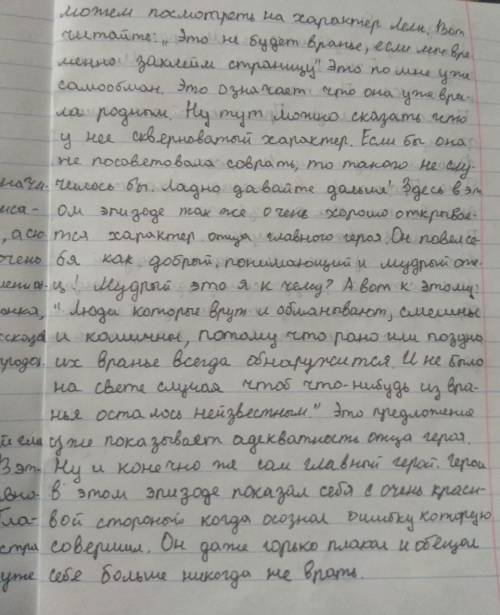 можем посмотреть на характер Лели. Вот
читайте: „Это не будет вранье, если мы вре-
менно заклеем страницу" Это по мне уже
самообман. Это означает что она уже вра-
ла родным. Ну тут можно сказать что
у нее скверноватый характер. Если бы она
не посоветовала соврать, то такого не слу-
чилось бы. Ладно давайте дальше! Здесь в эт
ом эпизоде так же, очень хорошо открывае-
тся характер отца главного героя. Он повел се-
бя как добрый, понимающий и мудрый оте-
ц! Мудрый это я к чему? А вот к этому:
"Люди которые врут и обманывают, смешны
и комичны, потому что рано или поздно
их вранье всегда обнаружится. И не было
на свете случая чтоб что-нибудь из вра-
нья осталось неизвестным." Это предложение
уже показывает адекватность отца героя.
Ну и конечно же сам главный герой. Герой
в этом эпизоде показал себя с очень краси-
вой стороной когда осознал ошибку которую
совершил. Он даже горько плакал и обещал
себе больше никогда не врать.
очень
В эт
уже